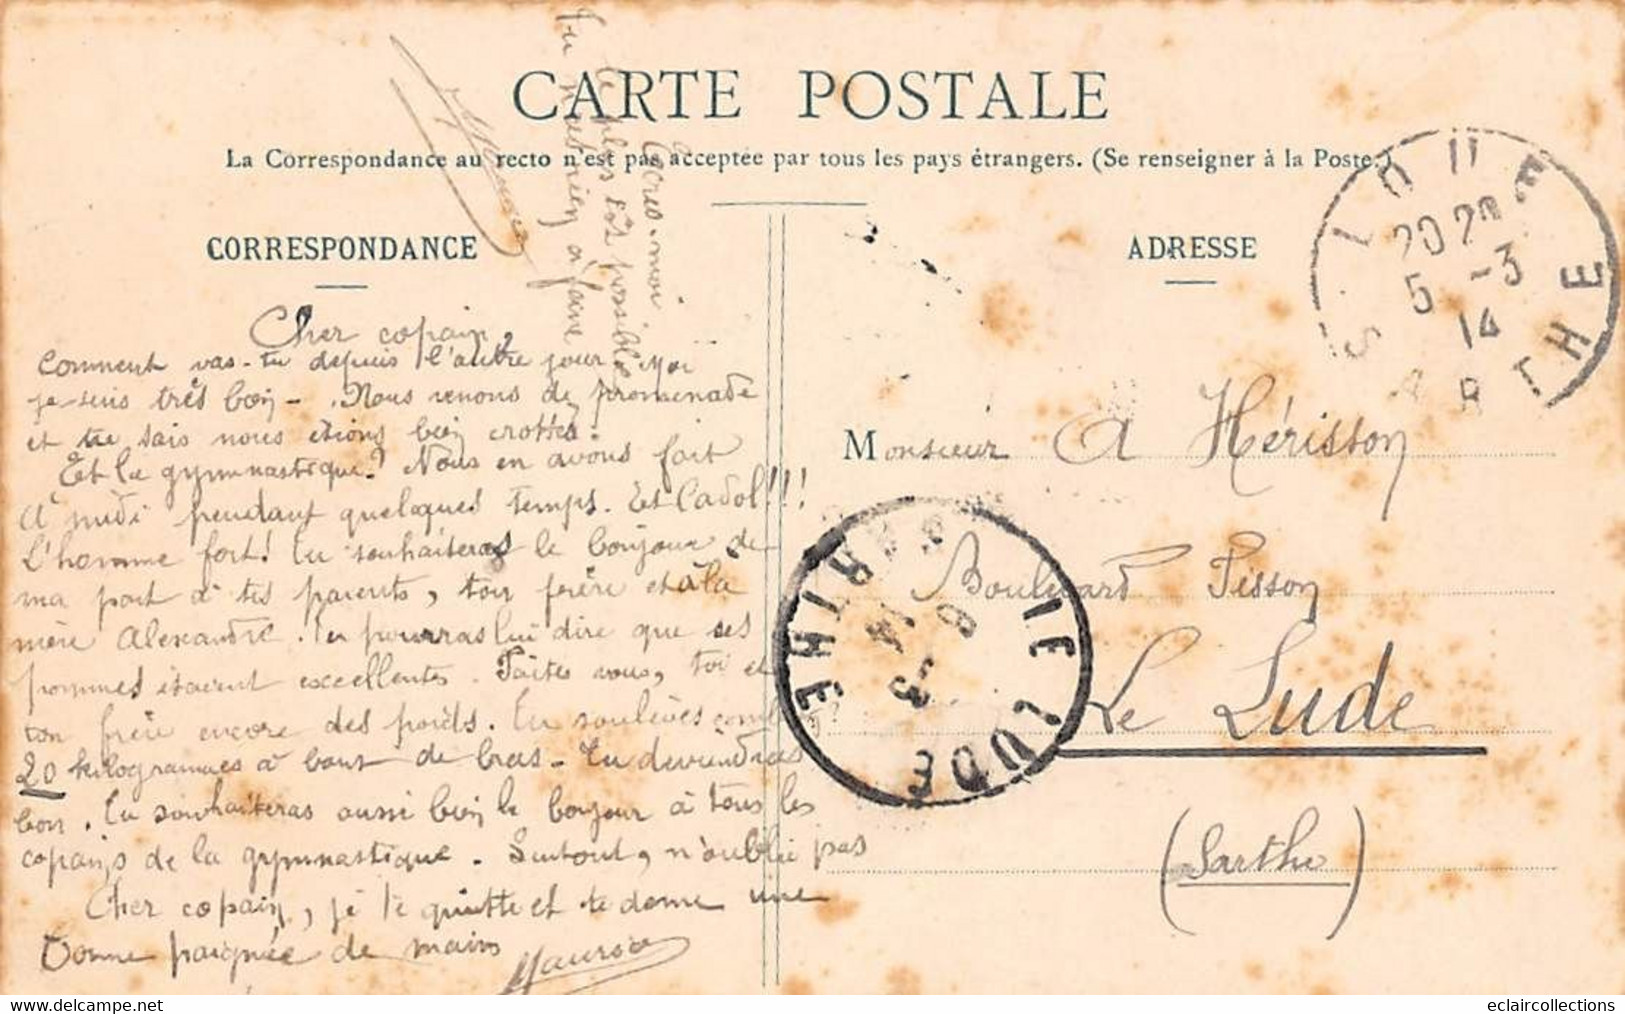 CARTE POSTALE
La Correspondance au recto n'est pas acceptée par tous les pays étrangers. (Se renseigner à la Poste.)
CORRESPONDANCE
ADRESSE
Ecris-moi
le plus tôt possible
Tu n'as rien à faire
Maurice
Cher copain,
Comment vas-tu depuis l'autre jour. Moi
je suis très bien -. Nous venons de promenade
et tu sais nous étions bien crottés.
Et la gymnastique? Nous en avons fait
à midi pendant quelques temps. Et Cadol!!!
l'homme fort! Tu souhaiteras le bonjour de
ma part à tes parents, ton frère et à la
mère Alexandre. Tu pourras lui dire que ses
pommes étaient excellentes. Faites vous, toi et
ton frère encore des poids. Tu soulèves
20 kilogrammes à bout de bras - Tu deviendras
bon. Tu souhaiteras aussi bien le bonjour à tous les
copains de la gymnastique. Surtout, n'oublie pas
Cher copain, je te quitte et te donne une
bonne poignée de mains
Maurice
Monsieur A Hérisson
Boulevard Fisson
Le Lude
(Sarthe)
LOUE
20 20
5 -3
14
SARTHE
LE LUDE
6 -3
14
SARTHE
www.delcampe.net
eclaircollections